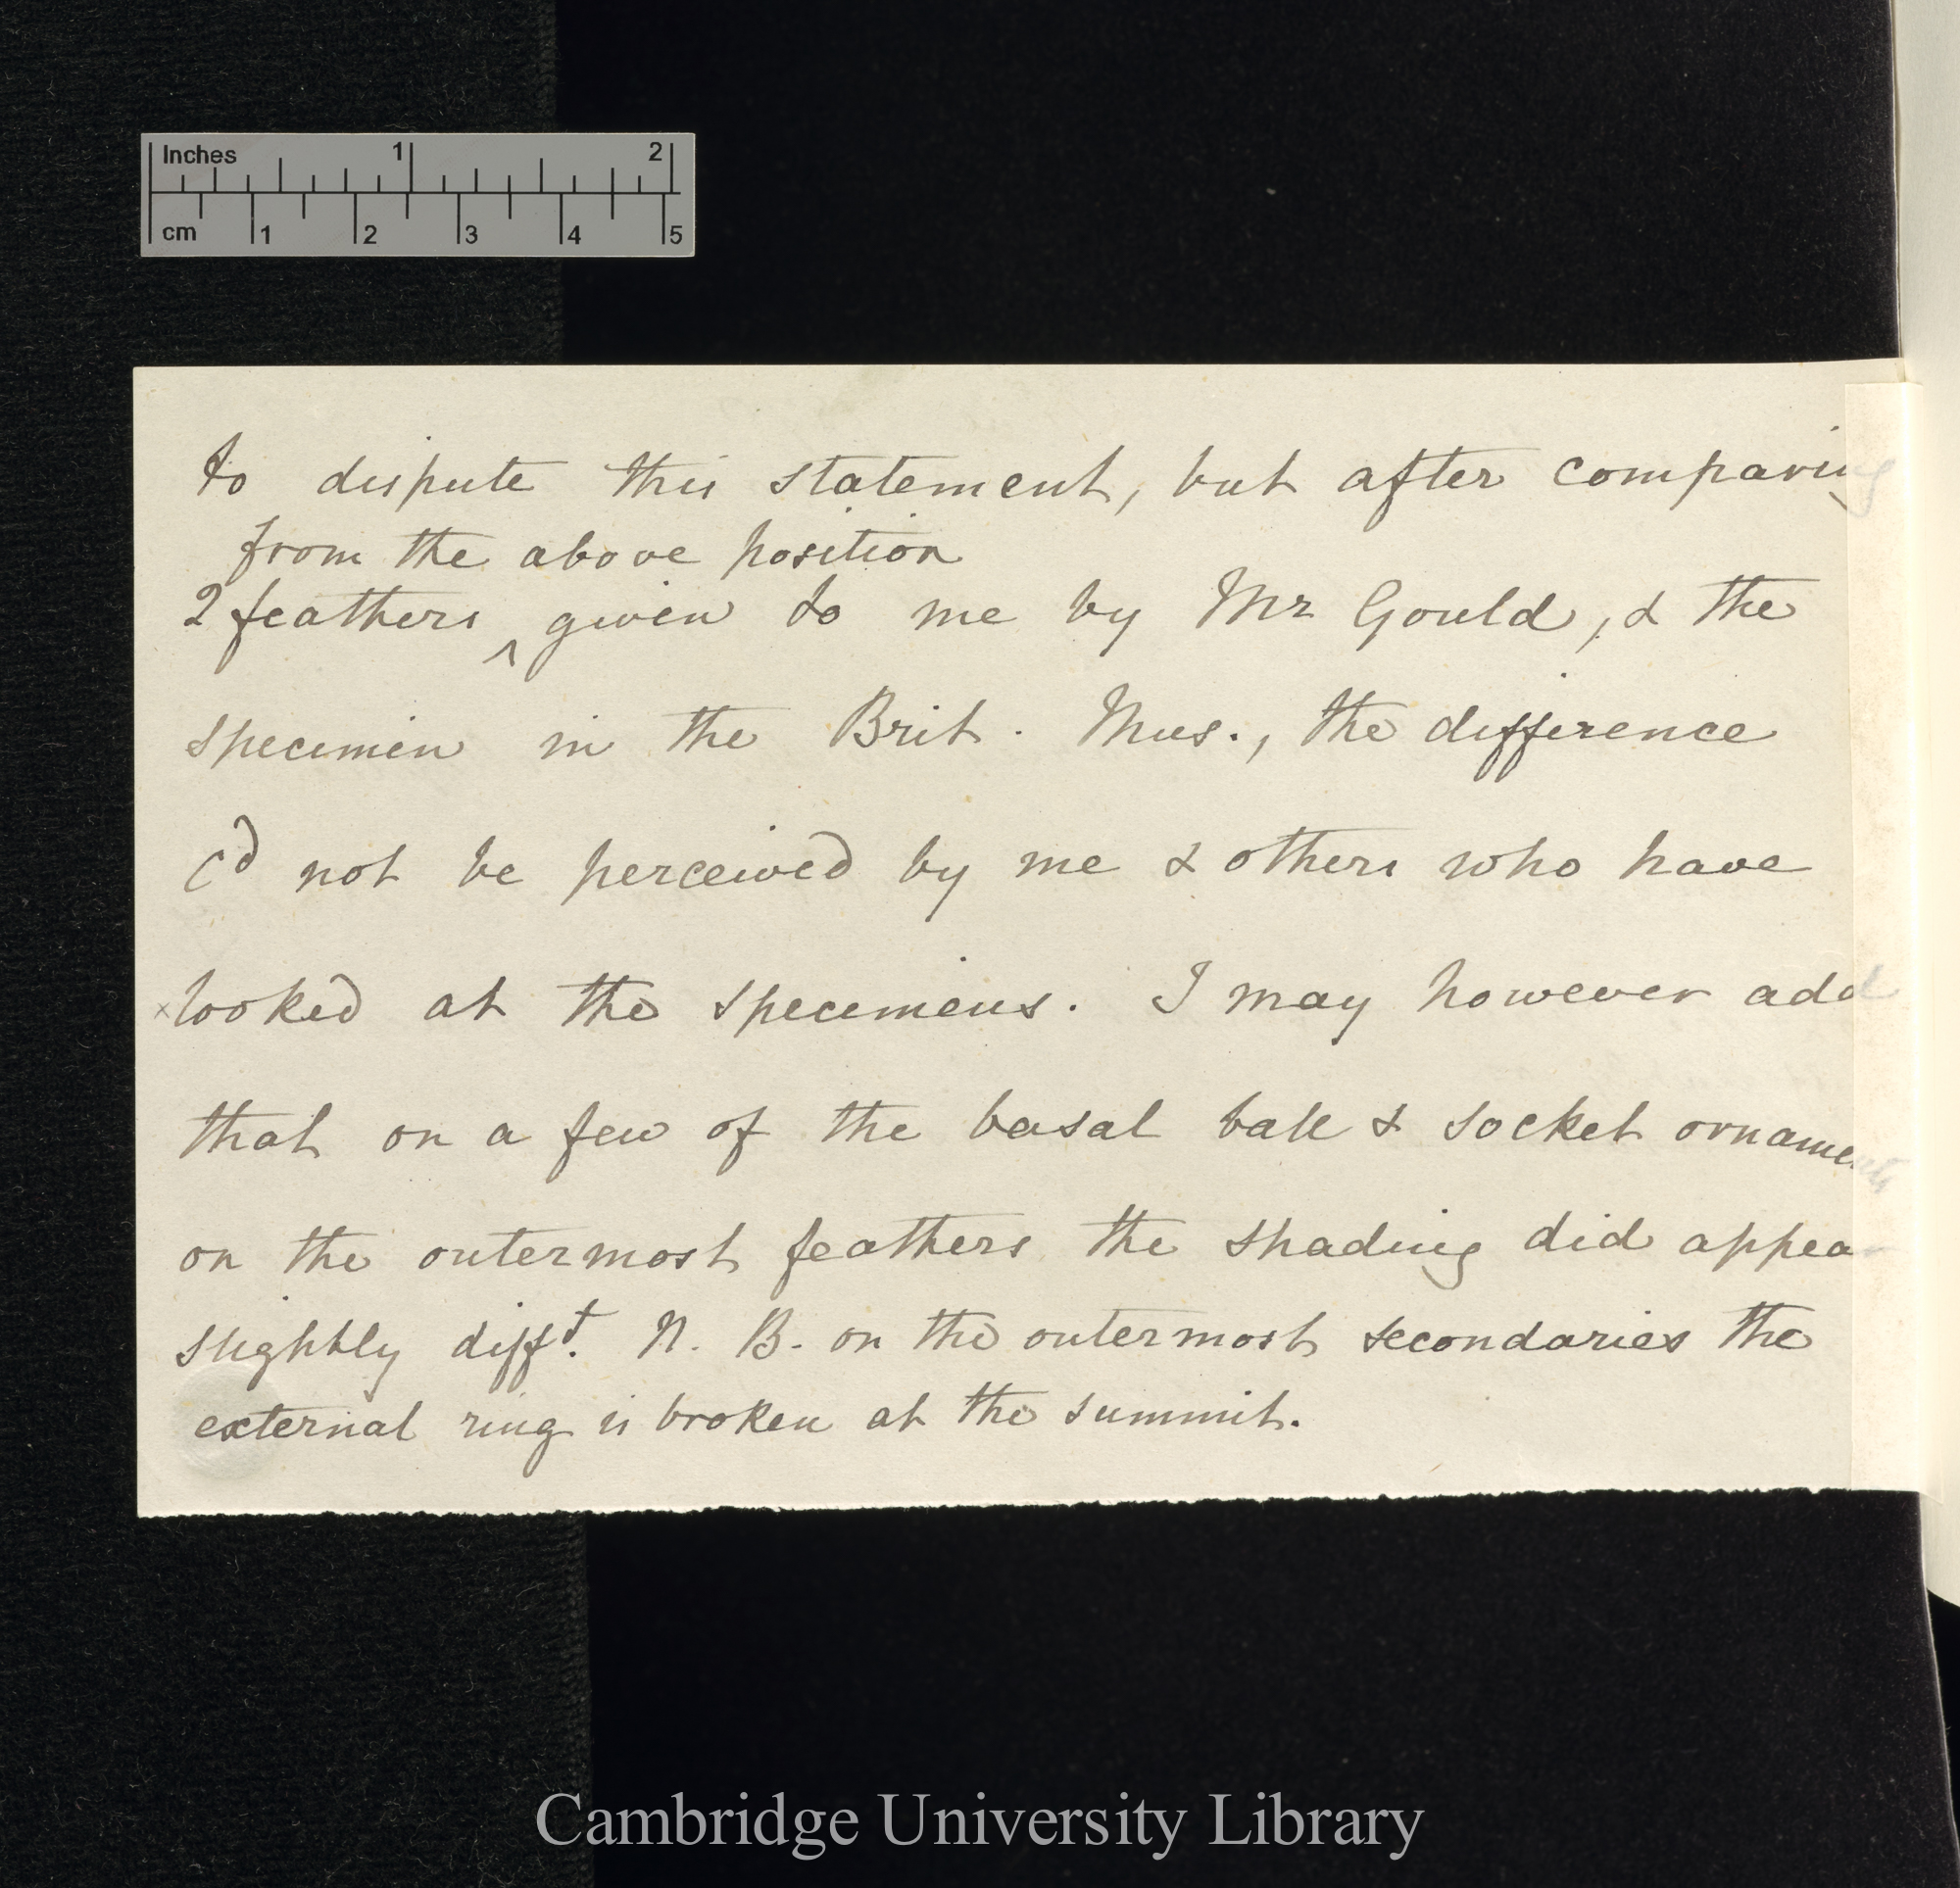 Inches 1 2
cm 1 2 3 4 5
to dispute this statement, but after comparing
from the above position
2 feathers ^ given to me by Mr Gould, & the
specimen in the Brit. Mus., the difference
cd not be perceived by me & others who have
looked at the specimens. I may however add
that on a few of the basal ball & socket ornaments
on the outermost feathers the shading did appear
slightly difft. N. B. on the outermost secondaries the
external ring is broken at the summit.
Cambridge University Library